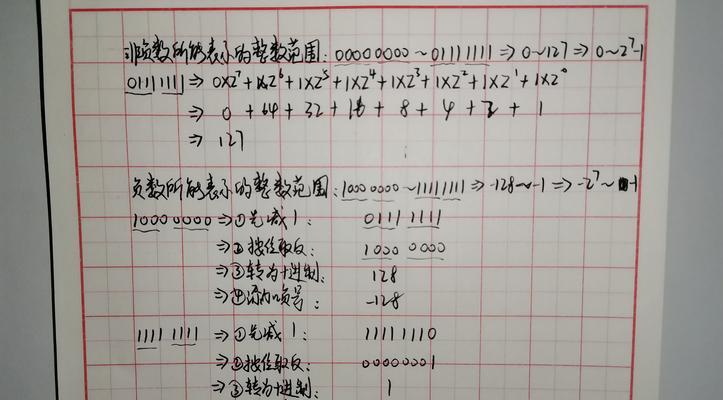 非负数所能表示的整数范围：00000000 ~ 01111111 ⇒ 0~127 ⇒ 0~2⁷-1
01111111 ⇒ 0×2⁷+1×2⁶+1×2⁵+1×2⁴+1×2³+1×2²+1×2¹+1×2⁰
⇒ 0 + 64 + 32 + 16 + 8 + 4 + 2 + 1
⇒ 127
负数所能表示的整数范围：1000 0000 ~ 11111111 ⇒ -128~-1 ⇒ -2⁷~-1
1000 0000 ⇒ ①先减1： 0111 1111
⇒ ②按位取反： 1000 0000
⇒ ③转为十进制： 128
⇒ ④添加负号： -128
1111 1111 ⇒ ①先减1： 11111110
⇒ ②按位取反： 00000001
⇒ ③转为十进制： 1